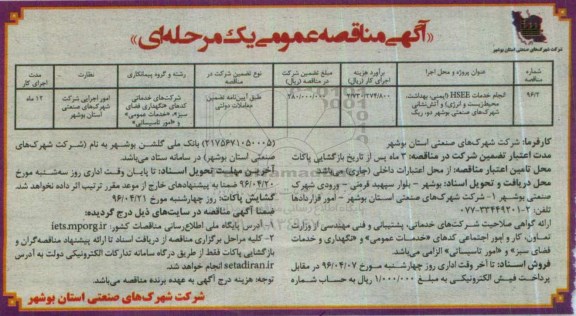 «آگهی مناقصه عمومی یک مرحله‌ای»
شرکت شهرک‌های صنعتی استان بوشهر
شماره مناقصه | عنوان پروژه و محل اجرا | برآورد هزینه اجرای کار (ریال) | مبلغ تضمین شرکت در مناقصه (ریال) | نوع تضمین شرکت در مناقصه | رشته و گروه پیمانکاری | نظارت | مدت اجرای کار
۹۶/۲ | انجام خدمات HSEE (ایمنی، بهداشت، محیط‌زیست و انرژی) و آتش‌نشانی شهرک‌های صنعتی بوشهر دو، ریگ | | ۲۸۰/۰۰۰/۰۰۰ | طبق آیین‌نامه تضمین معاملات دولتی | شرکت‌های خدماتی کدهای «نگهداری فضای سبز»، «خدمات عمومی» و «امور تاسیساتی» | امور اجرایی شرکت شهرک‌های صنعتی استان بوشهر | ۱۲ ماه
کارفرما: شرکت شهرک‌های صنعتی استان بوشهر
مدت اعتبار تضمین شرکت در مناقصه: ۳ ماه پس از تاریخ بازگشایی پاکات
محل تامین اعتبار مناقصه: از محل اعتبارات داخلی (جاری) می‌باشد.
محل دریافت و تحویل اسناد: بوشهر - بلوار سپهبد قرنی - ورودی شهرک
صنعتی بوشهر ۱- شرکت شهرک‌های صنعتی استان بوشهر - امور قراردادها
تلفن: ۲-۳۳۴۴۹۲۰۱-۰۷۷
ارائه گواهی صلاحیت شرکت‌های خدماتی، پشتیبانی و فنی مهندسی از وزارت
تعاون، کار و امور اجتماعی کدهای «خدمات عمومی» و «نگهداری و خدمات
فضای سبز» و «امور تاسیساتی» الزامی می‌باشد.
فروش اسناد: تا آخر وقت اداری روز چهارشنبه مورخ ۹۶/۰۴/۰۷ در مقابل
پرداخت فیش الکترونیکی به مبلغ ۱/۰۰۰/۰۰۰ ریال به حساب شماره
(۲۱۷۵۶۷۱۰۵۰۰۰۵) بانک ملی گلشن بوشهر به نام (شرکت شهرک‌های
صنعتی استان بوشهر) در سامانه ستاد می‌باشد.
آخرین مهلت تحویل اسناد: تا پایان وقت اداری روز سه‌شنبه مورخ
۹۶/۰۴/۲۰ ضمنا به پیشنهادهای خارج از موعد مقرر ترتیب اثر داده نخواهد شد.
گشایش پاکات: روز چهارشنبه مورخ ۹۶/۰۴/۲۱
ضمنا آگهی مناقصه در سایت‌های ذیل درج گردیده:
۱- آدرس پایگاه ملی اطلاع‌رسانی مناقصات کشور: iets.mporg.ir
۲- کلیه مراحل برگزاری مناقصه از دریافت اسناد تا ارائه پیشنهاد مناقصه‌گران و
بازگشایی پاکات فقط از طریق درگاه سامانه تدارکات الکترونیکی دولت به آدرس
setadiran.ir انجام خواهد شد.
توجه: هزینه درج آگهی به عهده برنده مناقصه می‌باشد.
شرکت شهرک‌های صنعتی استان بوشهر